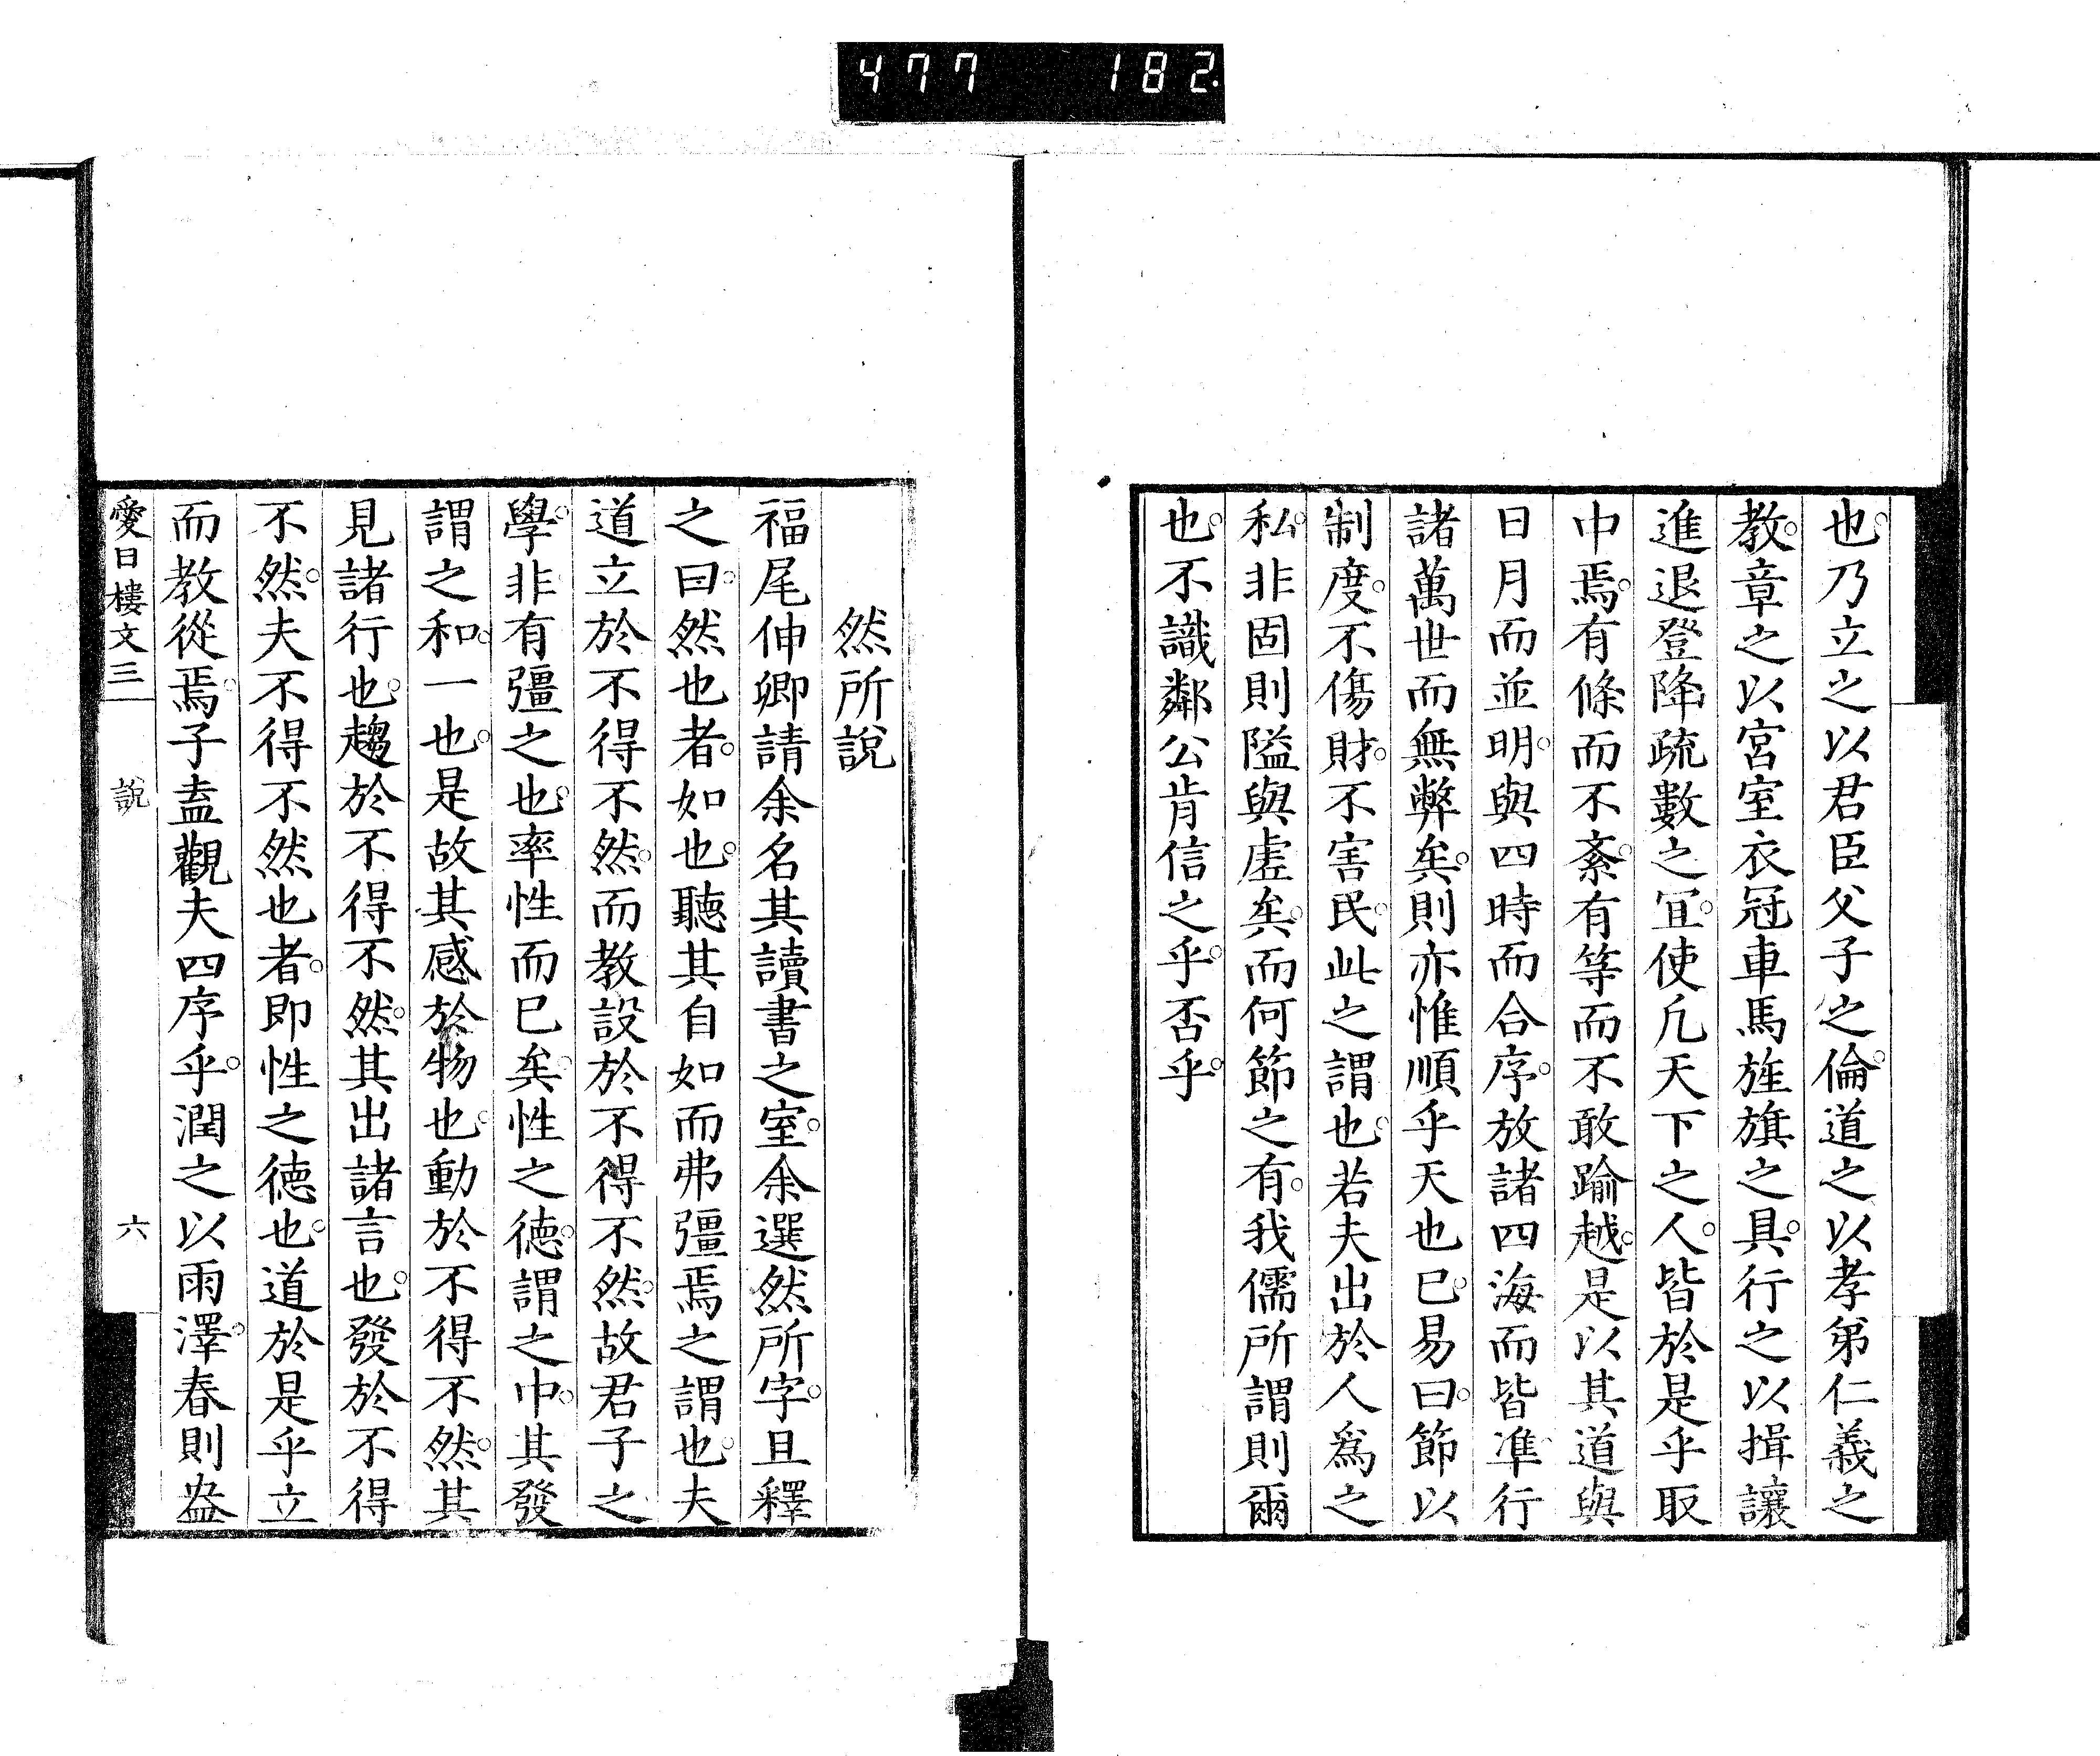 477 182
也。乃立之以君臣父子之倫。道之以孝弟仁義之
教。章之以宮室衣冠車馬旌旗之具。行之以揖讓
進退登降疏數之宜。使凡天下之人。皆於是乎取
中焉。有條而不紊。有等而不敢踰越。是以其道與
日月而並明。與四時而合序。放諸四海而皆準。行
諸萬世而無弊矣。則亦惟順乎天也已。易曰。節以
制度。不傷財。不害民。此之謂也。若夫出於人爲之
私。非固則隘與虛矣。而何節之有。我儒所謂則爾
也。不識鄰公肯信之乎。否乎。
然所說
福尾伸卿請余名其讀書之室。余選然所字。且釋
之曰。然也者。如也。聽其自如而弗彊焉之謂也。夫
道立於不得不然。而教設於不得不然。故君子之
學。非有彊之也。率性而已矣。性之德。謂之中。其發
謂之和。一也。是故其感於物也。動於不得不然。其
見諸行也。趨於不得不然。其出諸言也。發於不得
不然。夫不得不然也者。即性之德也。道於是乎立
而教從焉。子盍觀夫四序乎。潤之以雨澤。春則盎
愛日樓文三 說 六